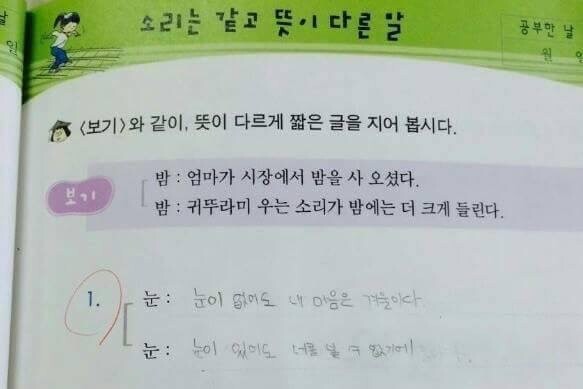 소리는 같고 뜻이 다른 말
공부한 날
월
<보기>와 같이, 뜻이 다르게 짧은 글을 지어 봅시다.
보기
밤 : 엄마가 시장에서 밤을 사 오셨다.
밤 : 귀뚜라미 우는 소리가 밤에는 더 크게 들린다.
1. 눈 : 눈이 없어도 내 마음은 겨울이다.
눈 : 눈이 있어도 너를 볼 수 없기에